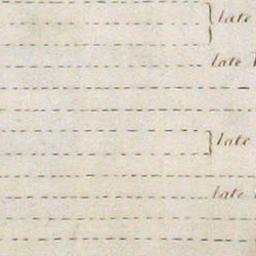 late
late
late
late